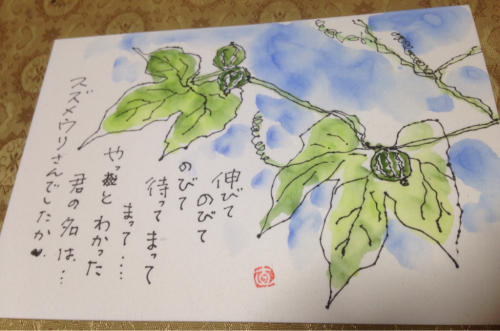 伸びて
のびて
のびて
待ってまって
まって・・・
やっとわかった
君の名は・・・
スズメウリさんでしたか